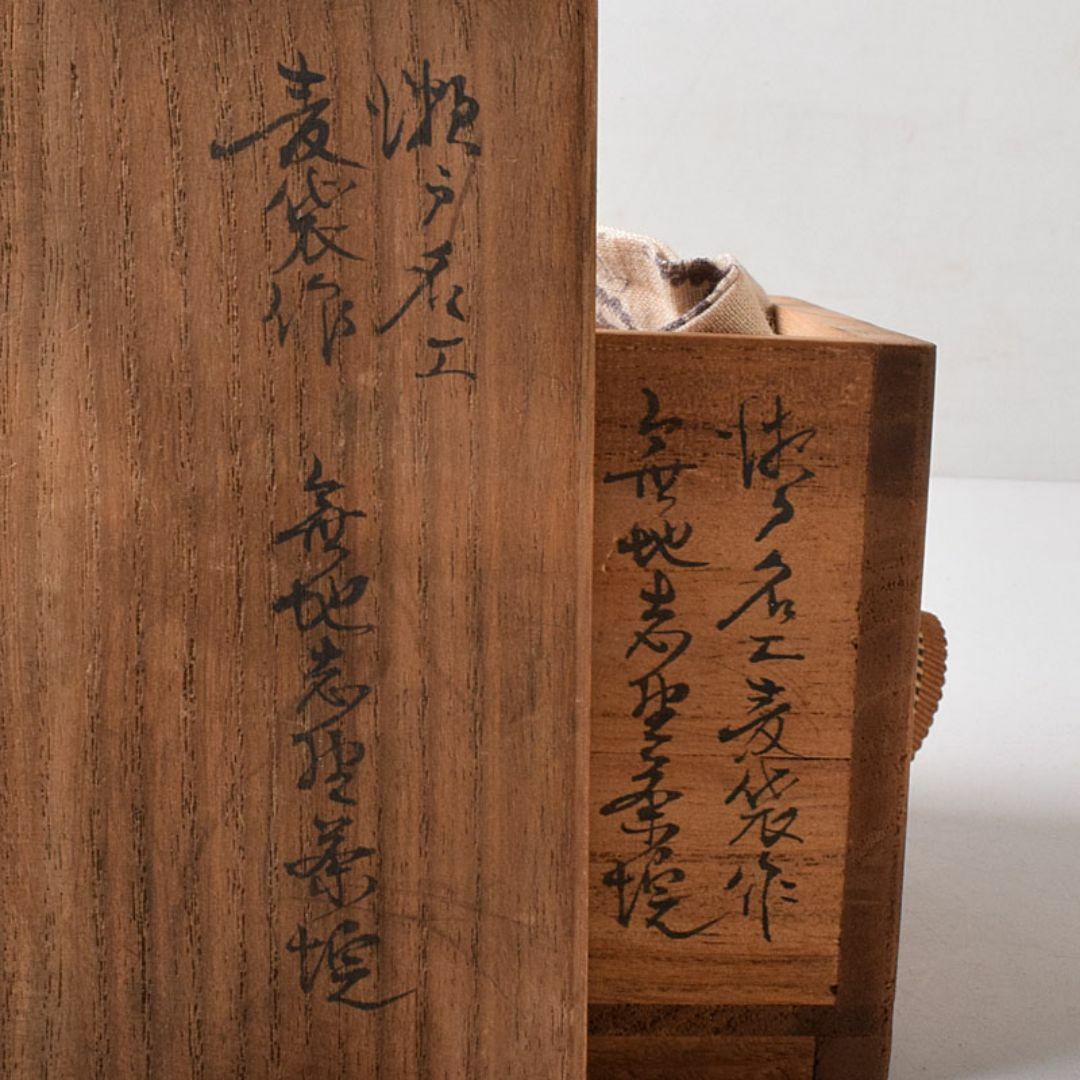 瀬戸名工
麦袋作
無地志野茶垸
瀬戸名工麦袋作
無地志野茶垸